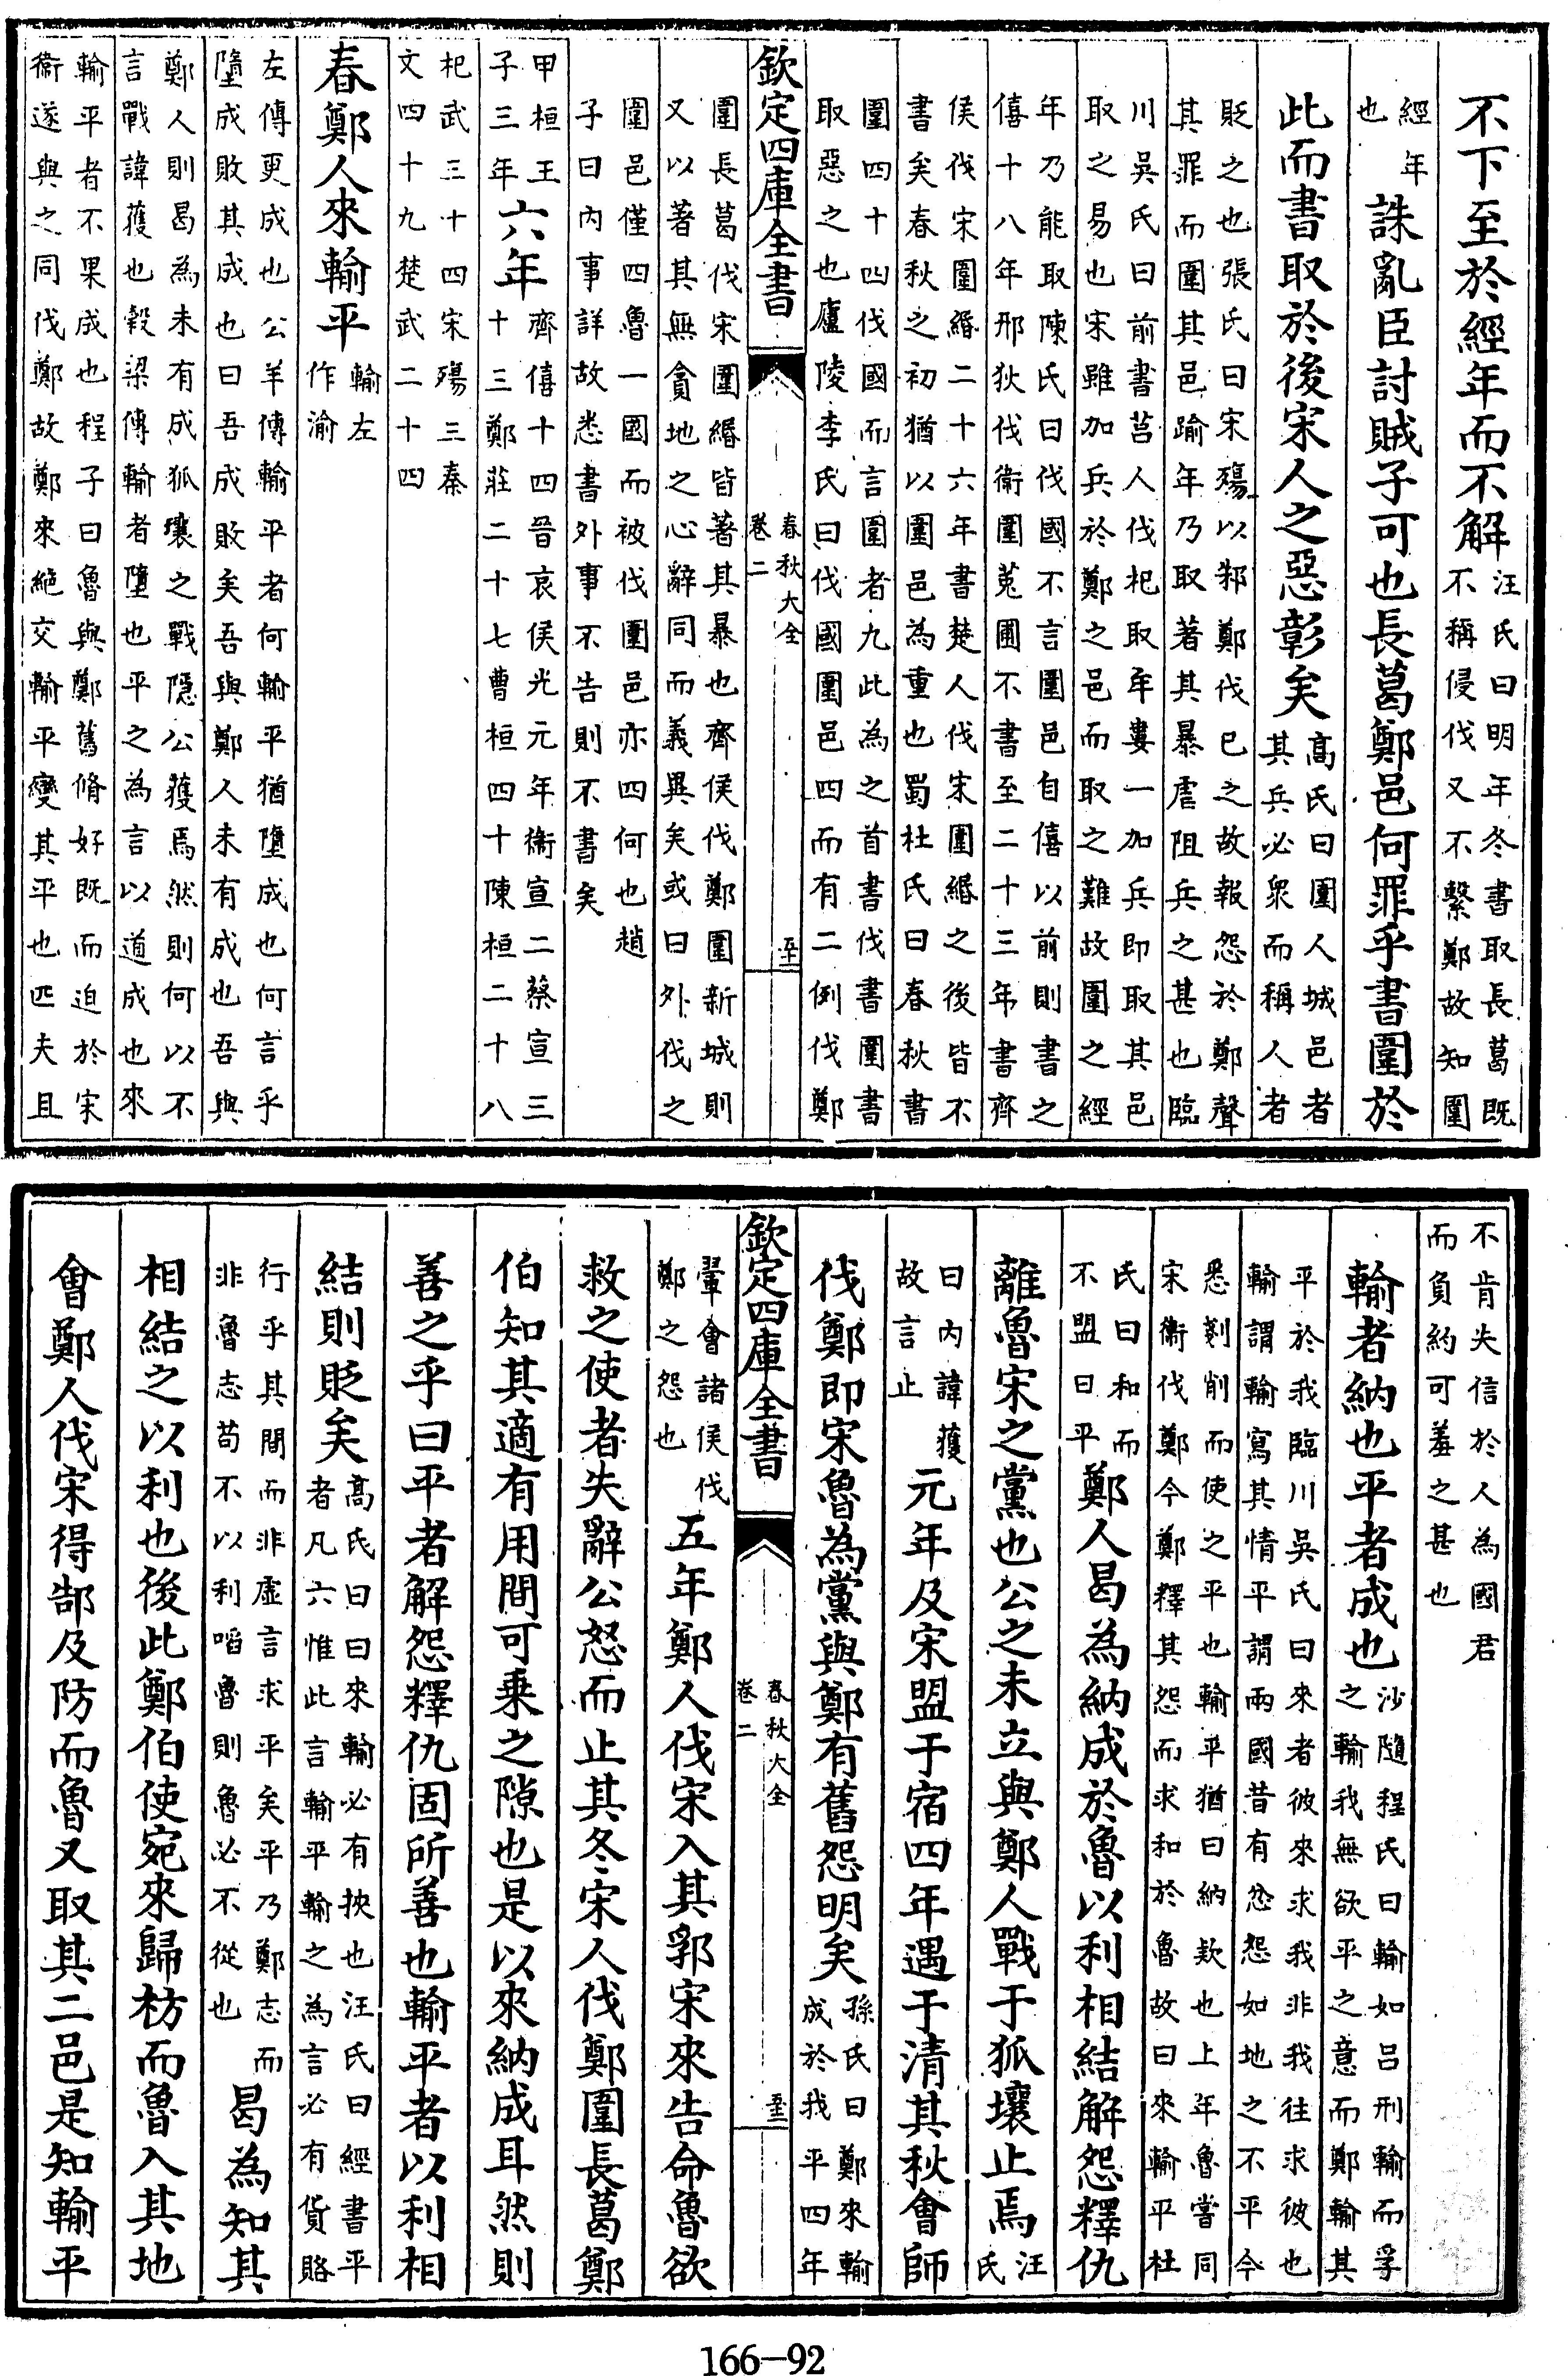 不下至於經年而不解汪氏曰明年冬書取長葛既不稱侵伐又不繫鄭故知圍
經年也誅亂臣討賊子可也長葛鄭邑何罪乎書圍於
此而書取於後宋人之惡彰矣高氏曰圍人城邑者其兵必衆而稱人者
貶之也張氏曰宋殤以邾鄭伐已之故報怨於鄭聲其罪而圍其邑踰年乃取著其暴虐阻兵之甚也臨
川吳氏曰前書莒人伐杞取牟婁一加兵即取其邑取之易也宋雖加兵於鄭之邑而取之難故圍之經
年乃能取陳氏曰伐國不言圍邑自僖以前則書之僖十八年邢狄伐衛圍菟圃不書至二十三年書齊
侯伐宋圍緡二十六年書楚人伐宋圍緡之後皆不書矣春秋之初猶以圍邑為重也蜀杜氏曰春秋書
圍四十四伐國而言圍者九此為之首書伐書圍書取惡之也廬陵李氏曰伐國圍邑四而有二例伐鄭
欽定四庫全書
春秋大全
卷二
圍長葛伐宋圍緡皆著其暴也齊侯伐鄭圍新城則又以著其無貪地之心辭同而義異矣或曰外伐之
圍邑僅四魯一國而被伐圍邑亦四何也趙子曰內事詳故悉書外事不告則不書矣
甲子桓王三年六年齊僖十四晉哀侯光元年衛宣二蔡宣三十三鄭莊二十七曹桓四十陳桓二十八
杞武三十四宋殤三秦文四十九楚武二十四
春鄭人來輸平輸左作渝
左傳更成也公羊傳輸平者何輸平猶墮成也何言乎墮成敗其成也曰吾成敗矣吾與鄭人未有成也吾與
鄭人則曷為未有成狐壤之戰隱公獲焉然則何以不言戰諱獲也穀梁傳輸者墮也平之為言以道成也來
輸平者不果成也程子曰魯與鄭舊脩好既而迫於宋衛遂與之同伐鄭故鄭來絶交輸平變其平也匹夫且
不肯失信於人為國君而負約可羞之甚也
輸者納也平者成也沙隨程氏曰輸如呂刑輸而孚之輸我無欲平之意而鄭輸其
平於我臨川吳氏曰來者彼來求我非我往求彼也輸謂輸寫其情平謂兩國昔有忿怨如地之不平今
悉剗削而使之平也輸平猶曰納欵也上年魯嘗同宋衛伐鄭今鄭釋其怨而求和於魯故曰來輸平杜
氏曰和而不盟曰平鄭人曷為納成於魯以利相結解怨釋仇
離魯宋之黨也公之未立與鄭人戰于狐壤止焉汪氏
曰內諱獲故言止元年及宋盟于宿四年遇于清其秋會師
伐鄭即宋魯為黨與鄭有舊怨明矣孫氏曰鄭來輸成於我平四年
欽定四庫全書
春秋大全
卷二
翬會諸侯伐鄭之怨也五年鄭人伐宋入其郛宋來告命魯欲
救之使者失辭公怒而止其冬宋人伐鄭圍長葛鄭
伯知其適有用間可乗之隙也是以來納成耳然則
善之乎曰平者解怨釋仇固所善也輸平者以利相
結則貶矣高氏曰曰來輸必有挾也汪氏曰經書平者凡六惟此言輸平輸之為言必有貨賂
行乎其間而非虛言求平矣平乃鄭志而非魯志苟不以利啗魯則魯必不從也曷為知其
相結之以利也後此鄭伯使宛來歸枋而魯入其地
會鄭人伐宋得郜及防而魯又取其二邑是知輸平
166-92